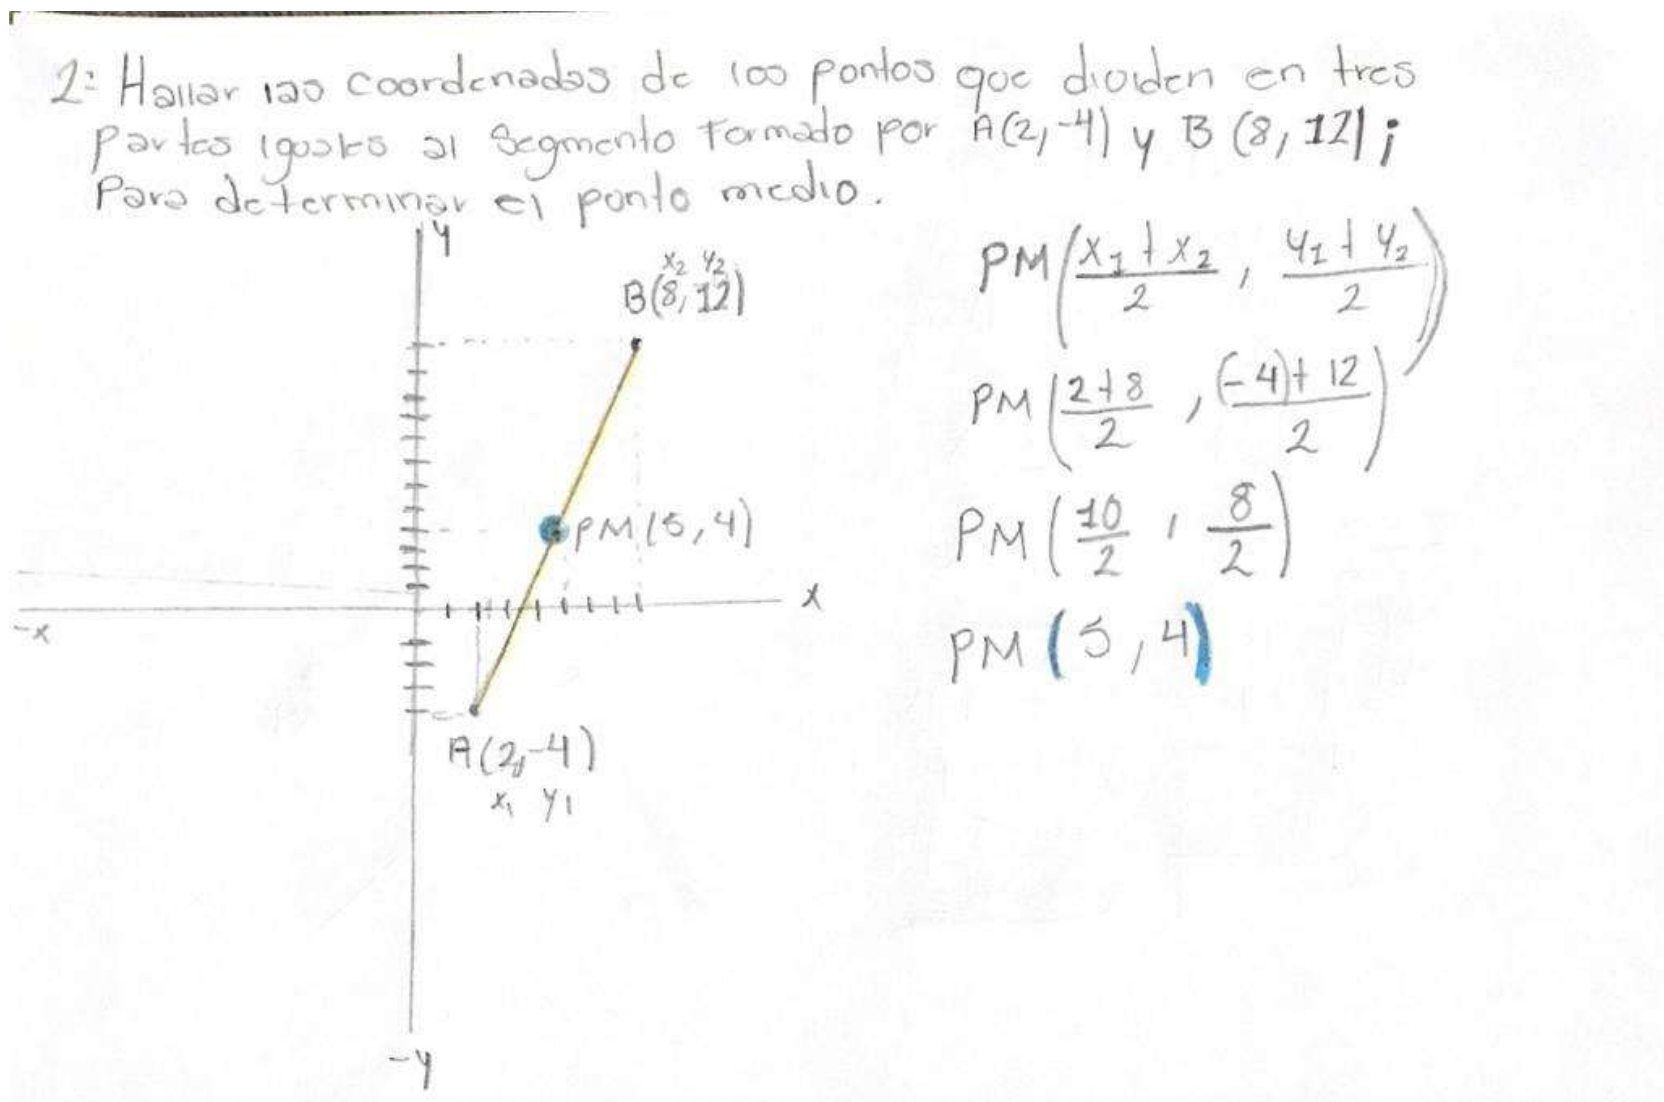 2: Hallar las coordenadas de los pontos que dividen en tres
partes iguales al segmento formado por A(2,-4) y B (8, 12);
Para determinar el ponto medio.
y
x₂ y₂
B(8, 12)
PM(5, 4)
x
-x
A(2,-4)
x₁ y₁
-y
PM((x₁ + x₂)/2 , (y₁ + y₂)/2)
PM((2+8)/2 , ((-4)+12)/2)
PM(10/2 , 8/2)
PM (5, 4)